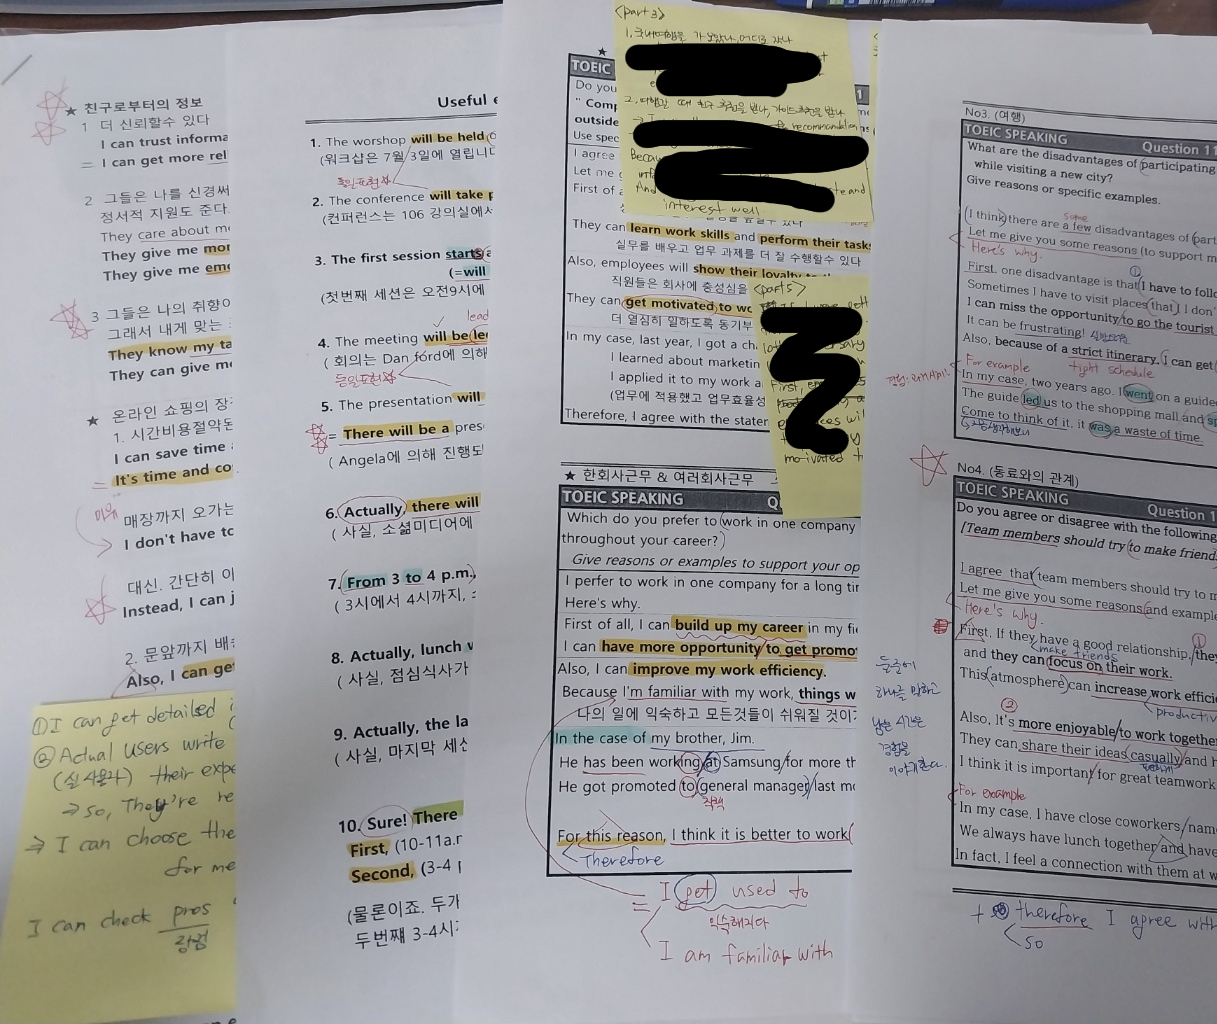 ★ 친구로부터의 정보
1 더 신뢰할수 있다
I can trust informa
= I can get more rel
2 그들은 나를 신경써
정서적 지원도 준다.
They care about me
They give me mor
They give me emo
3 그들은 나의 취향이
그래서 내게 맞는
They know my ta
They can give me
★ 온라인 쇼핑의 장
1. 시간비용절약
I can save time
= It's time and co
매장까지 오가는
I don't have to
대신. 간단히 이
Instead, I can j
2. 문앞까지 배
Also, I can ge
①I can get detailed
② Actual users write
(실사용자) their expe
→ so, They're re
⇒ I can choose the
for me
I can check pros
장점
Useful e
1. The worshop will be held
(워크샵은 7월 3일에 열립니다
동일표현
2. The conference will take p
(컨퍼런스는 106 강의실에서
3. The first session starts
(=will
(첫번째 세션은 오전9시에
lead
4. The meeting will be le
( 회의는 Dan ford에 의해
동일표현
5. The presentation will
= There will be a pres
( Angela에 의해 진행되
6. Actually, there will
( 사실, 소셜미디어에
7. From 3 to 4 p.m.,
( 3시에서 4시까지,
8. Actually, lunch w
( 사실, 점심식사가
9. Actually, the la
( 사실, 마지막 세션
10. Sure! There
First, (10-11a.r
Second, (3-4 p
(물론이죠. 두가
두번째 3-4시
<part 3>
1. 국내여행을 가 보았나, 어디로 갔나
2. 여행갈 때 친구 추천을 받나, 가이드추천을 받나
recommendation
Becau
And
interest well
★
TOEIC
Do you
" Comp
outside
Use spec
I agree
Let me g
First of a
They can learn work skills and perform their tasks
실무를 배우고 업무 과제를 더 잘 수행할수 있다
Also, employees will show their loyalty
직원들은 회사에 충성심을
They can get motivated to wo
더 열심히 일하도록 동기부
In my case, last year, I got a cha
I learned about marketin
I applied it to my work a
(업무에 적용했고 업무효율성
Therefore, I agree with the staten
<part5>
First,
motivated t
★ 한회사근무 & 여러회사근무
TOEIC SPEAKING Q
Which do you prefer to (work in one company
throughout your career?)
Give reasons or examples to support your op
I perfer to work in one company for a long tir
Here's why.
First of all, I can build up my career in my fie
I can have more opportunity to get promo
Also, I can improve my work efficiency.
Because I'm familiar with my work, things w
나의 일에 익숙하고 모든것들이 쉬워질 것이기
In the case of my brother, Jim.
He has been working at Samsung for more th
He got promoted to (general manager) last mo
직책
For this reason, I think it is better to work
Therefore
= I get used to
익숙해지다
I am familiar with
No3. (여행)
TOEIC SPEAKING Question 11
What are the disadvantages of (participating
while visiting a new city?
Give reasons or specific examples.
some
(I think) there are a few disadvantages of (part
Let me give you some reasons (to support m
Here's why.
①
First, one disadvantage is that I have to follo
Sometimes I have to visit places (that) I don'
I can miss the opportunity to go the tourist
It can be frustrating!
Also, because of a strict itinerary. I can get
For example tight schedule
In my case, two years ago. I went on a guide
The guide led us to the shopping mall and sp
Come to think of it. it was a waste of time.
No4. (동료와의 관계)
TOEIC SPEAKING Question 1
Do you agree or disagree with the following
[Team members should try (to make friend
I agree that team members should try to m
Let me give you some reasons and example
Here's why.
①
First, If they have a good relationship, they
make friends
and they can focus on their work.
This (atmosphere) can increase work effici
productiv
②
Also, It's more enjoyable to work together
They can share their ideas (casually) and h
I think it is important for great teamwork
For example
In my case, I have close coworkers, name
We always have lunch together and have
In fact, I feel a connection with them at w
둘중에
하나를 말하고
남은 시간은
경험을
이야기한다.
+ therefore I agree with
so